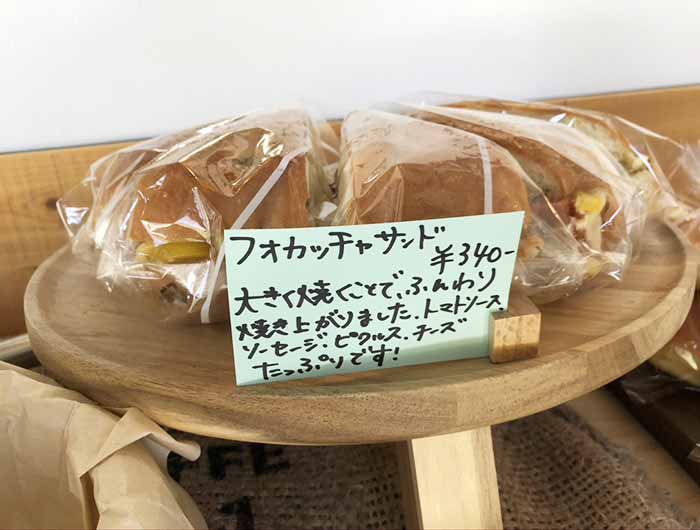 フォカッチャサンド
¥340-
大きく焼くことで、ふんわり
焼き上がりました。トマトソース、
ソーセージ、ピクルス、チーズ
たっぷりです!